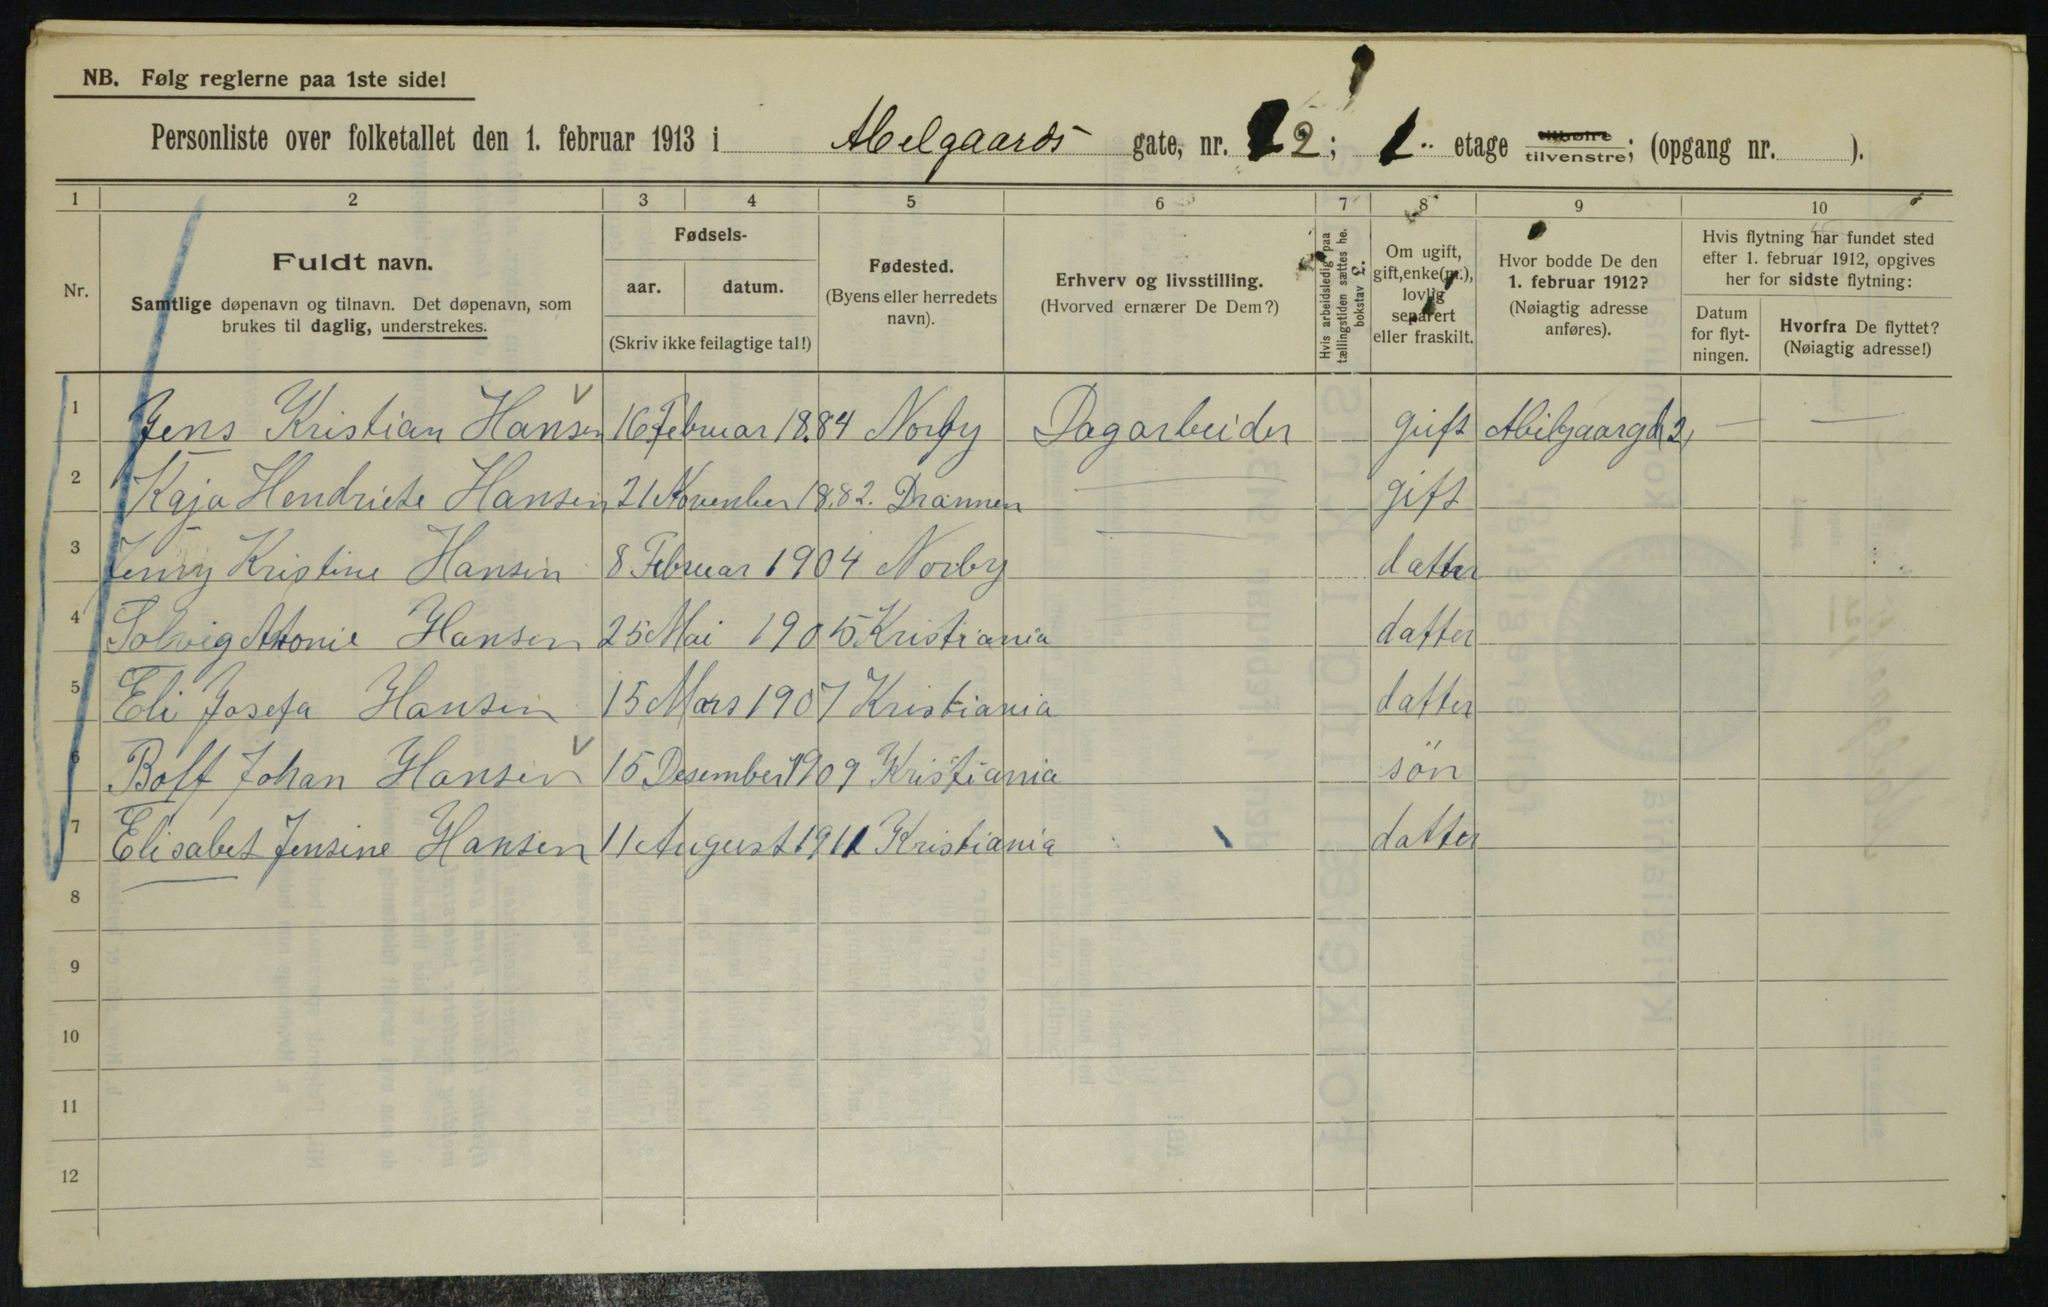 NB. Følg reglerne paa 1ste side!
Personliste over folketallet den 1. februar 1913 i Abelgaards gate, nr. 2; 1 etage tilhøire tilvenstre; (opgang nr. ).
1 2 3 4 5 6 7 8 9 10
Nr.
Fuldt navn.
Samtlige døpenavn og tilnavn. Det døpenavn, som
brukes til daglig, understrekes.
Fødsels-
aar. datum.
(Skriv ikke feilagtige tal!)
Fødested.
(Byens eller herredets
navn).
Erhverv og livsstilling.
(Hvorved ernærer De Dem?)
Hvis arbeidsledig paa
tællingstiden sættes he.
bokstav L.
Om ugift,
gift, enke(m.),
lovlig
separert
eller fraskilt.
Hvor bodde De den
1. februar 1912?
(Nøiagtig adresse
anføres).
Hvis flytning har fundet sted
efter 1. februar 1912, opgives
her for sidste flytning:
Datum
for flyt-
ningen.
Hvorfra De flyttet?
(Nøiagtig adresse!)
1 Jens Kristian Hansen 16 Februar 1884 Norby Dagarbeider gift 2 — —
2 Kaja Hendriete Hansen 21 November 1882. Drammen — gift
3 Jenny Kristine Hansen 8 Februar 1904 Norby — datter
4 Solveig Antonie Hansen 25 Mai 1905 Kristiania — datter
5 Eli Josefa Hansen 15 Mars 1907 Kristiania datter
6 Rolf Johan Hansen 15 Desember 1909 Kristiania søn
7 Elisabet Jensine Hansen 11 August 1911 Kristiania datter
8
9
10
11
12